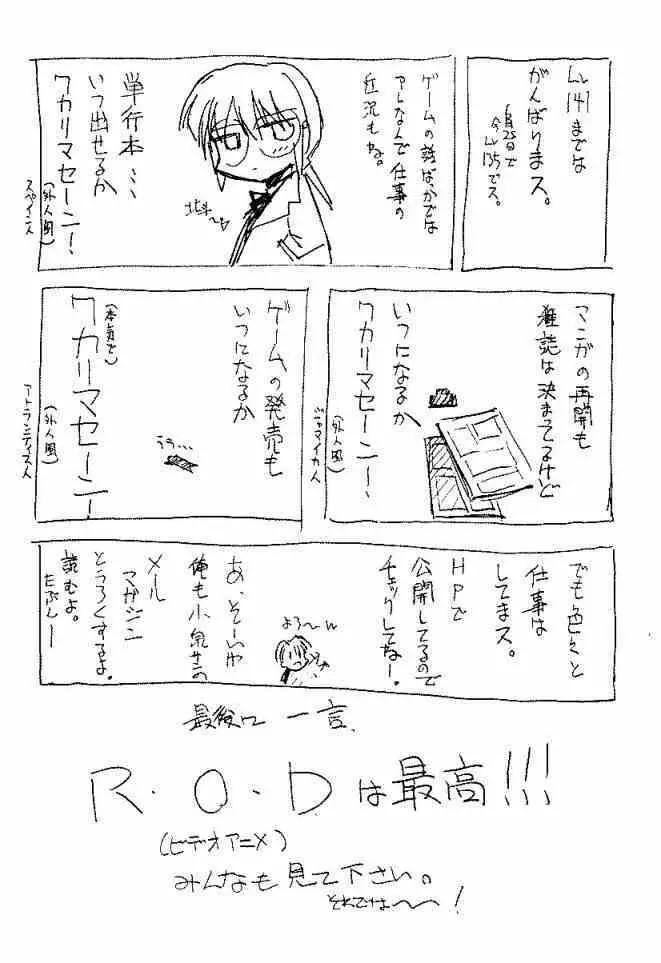 Lv 141までは
がんばりまス。
6月25日で
今Lv135でス。
ゲームの話ばっかでは
アレなんで仕事の
近況もね。
単行本…
いつ出せるか
ワカリマセーン!
(外人風)
スペイン人
マンガの再開も
雑誌は決まってるけど
いつになるか
ワカリマセーン!
(外人風)
ジャマイカ人
ゲームの発売も
いつになるか
(本気で)
ワカリマセーン!
(外人風)
アトランティス人
うう…
でも色々と
仕事は
してまス。
HPで
公開してるので
チェックしてなー!
よろ〜
あ、そーいや
俺も小泉サンの
メール
マガジン
とうろくするよ。
読むよ。
たぶんー
最後に一言、
R・O・Dは最高!!!
(ビデオアニメ)
みんなも見て下さい。
それでは〜〜!